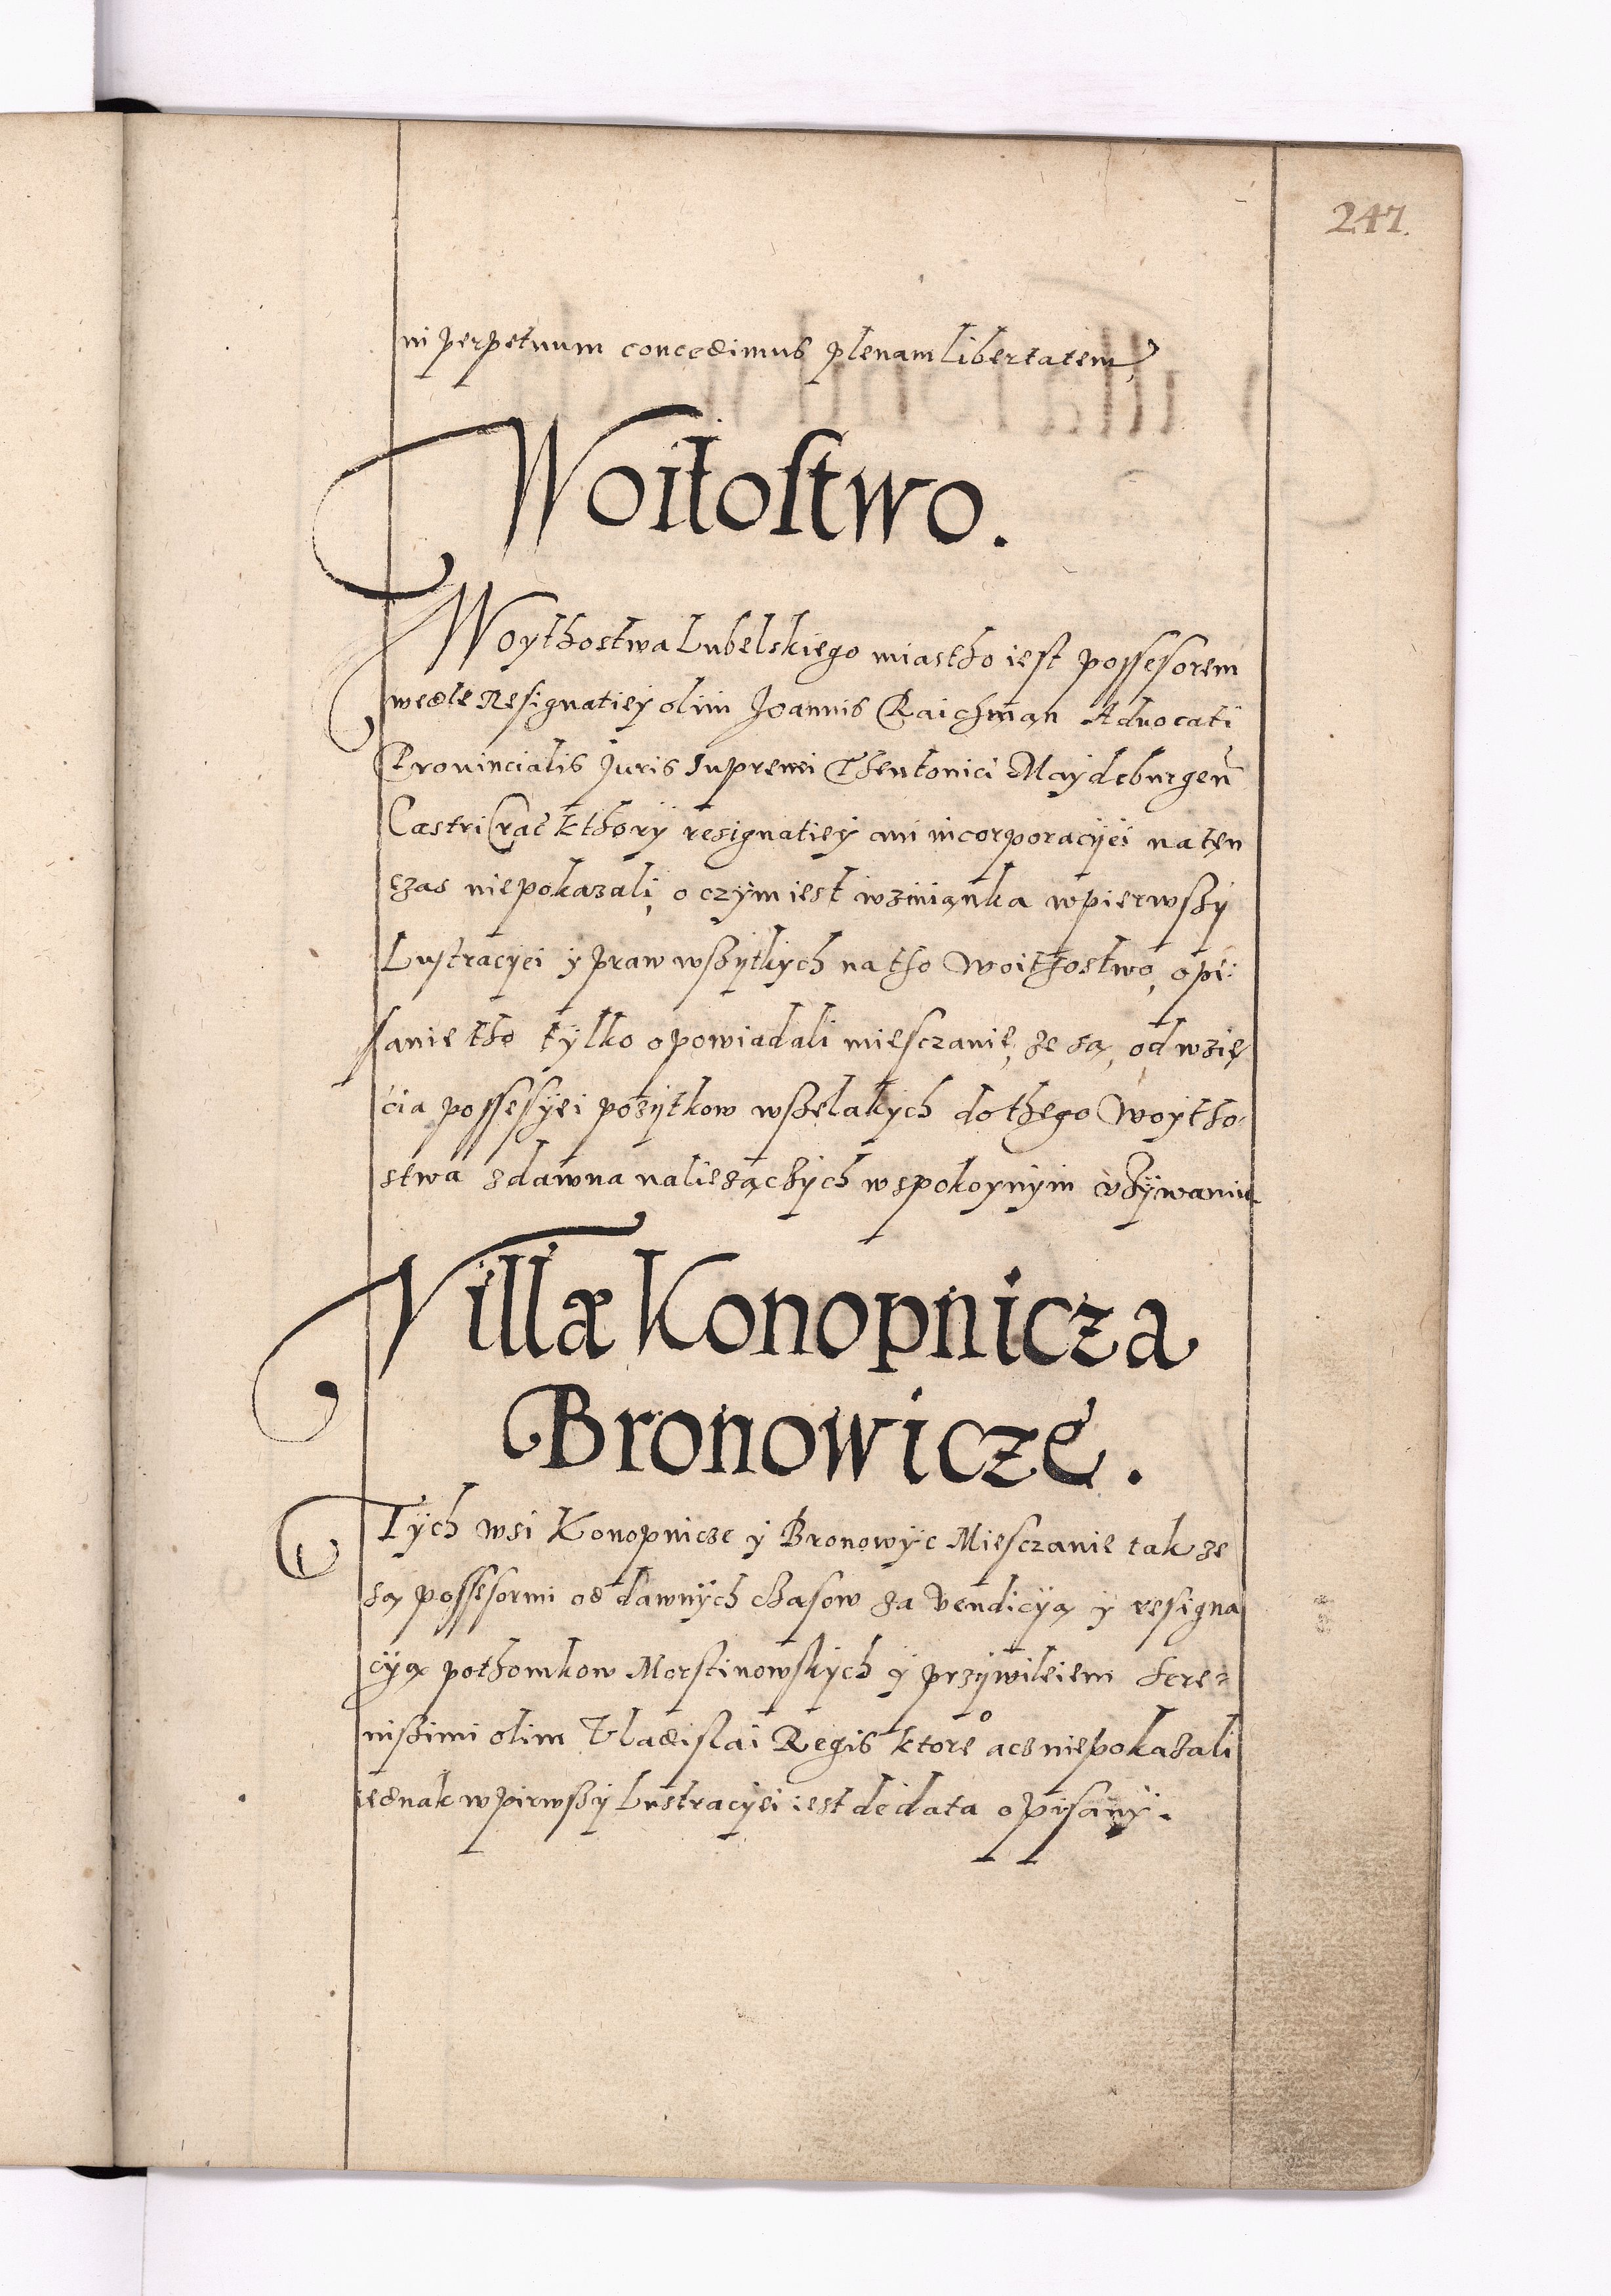 247.
in perpetuum concedimus plenam libertatem,
Woitostwo.
Woythostwa Lubelskiego miastho iest possesorem
wedle Resignatiey olim Joannis Raichman Aduocati
Prouincialis Juris Supremi Theutonici Maydeburgeñ
Castri Crac̃ kthory resignatiey ani incorporacyei na ten
czas niepokazali, o czym iest wzmianka w pierwszy
Lustracyei y praw wszytkych na tho Woithostwo, opi:
sanie tho tylko opowiadali miesczanie, ze są, od wzię
cia possesyei pozytkow wszelakych do thego Woytho-
stwa zdawna naliezączych w spokoynym vzywaniu
Villæ Konopnicza
Bronowicze.
Tych wsi Konopnicze y Bronowyc Miesczanie takze
są possesormi od dawnych czasow za vendicyą y resigna
cyą pothomkow Morstinowskych y przywileiem Sere=
nissimi olim Vladislai Regis ktore° acz niepokazali
iednak w pirwszy Lustracyei iest de data opisany.